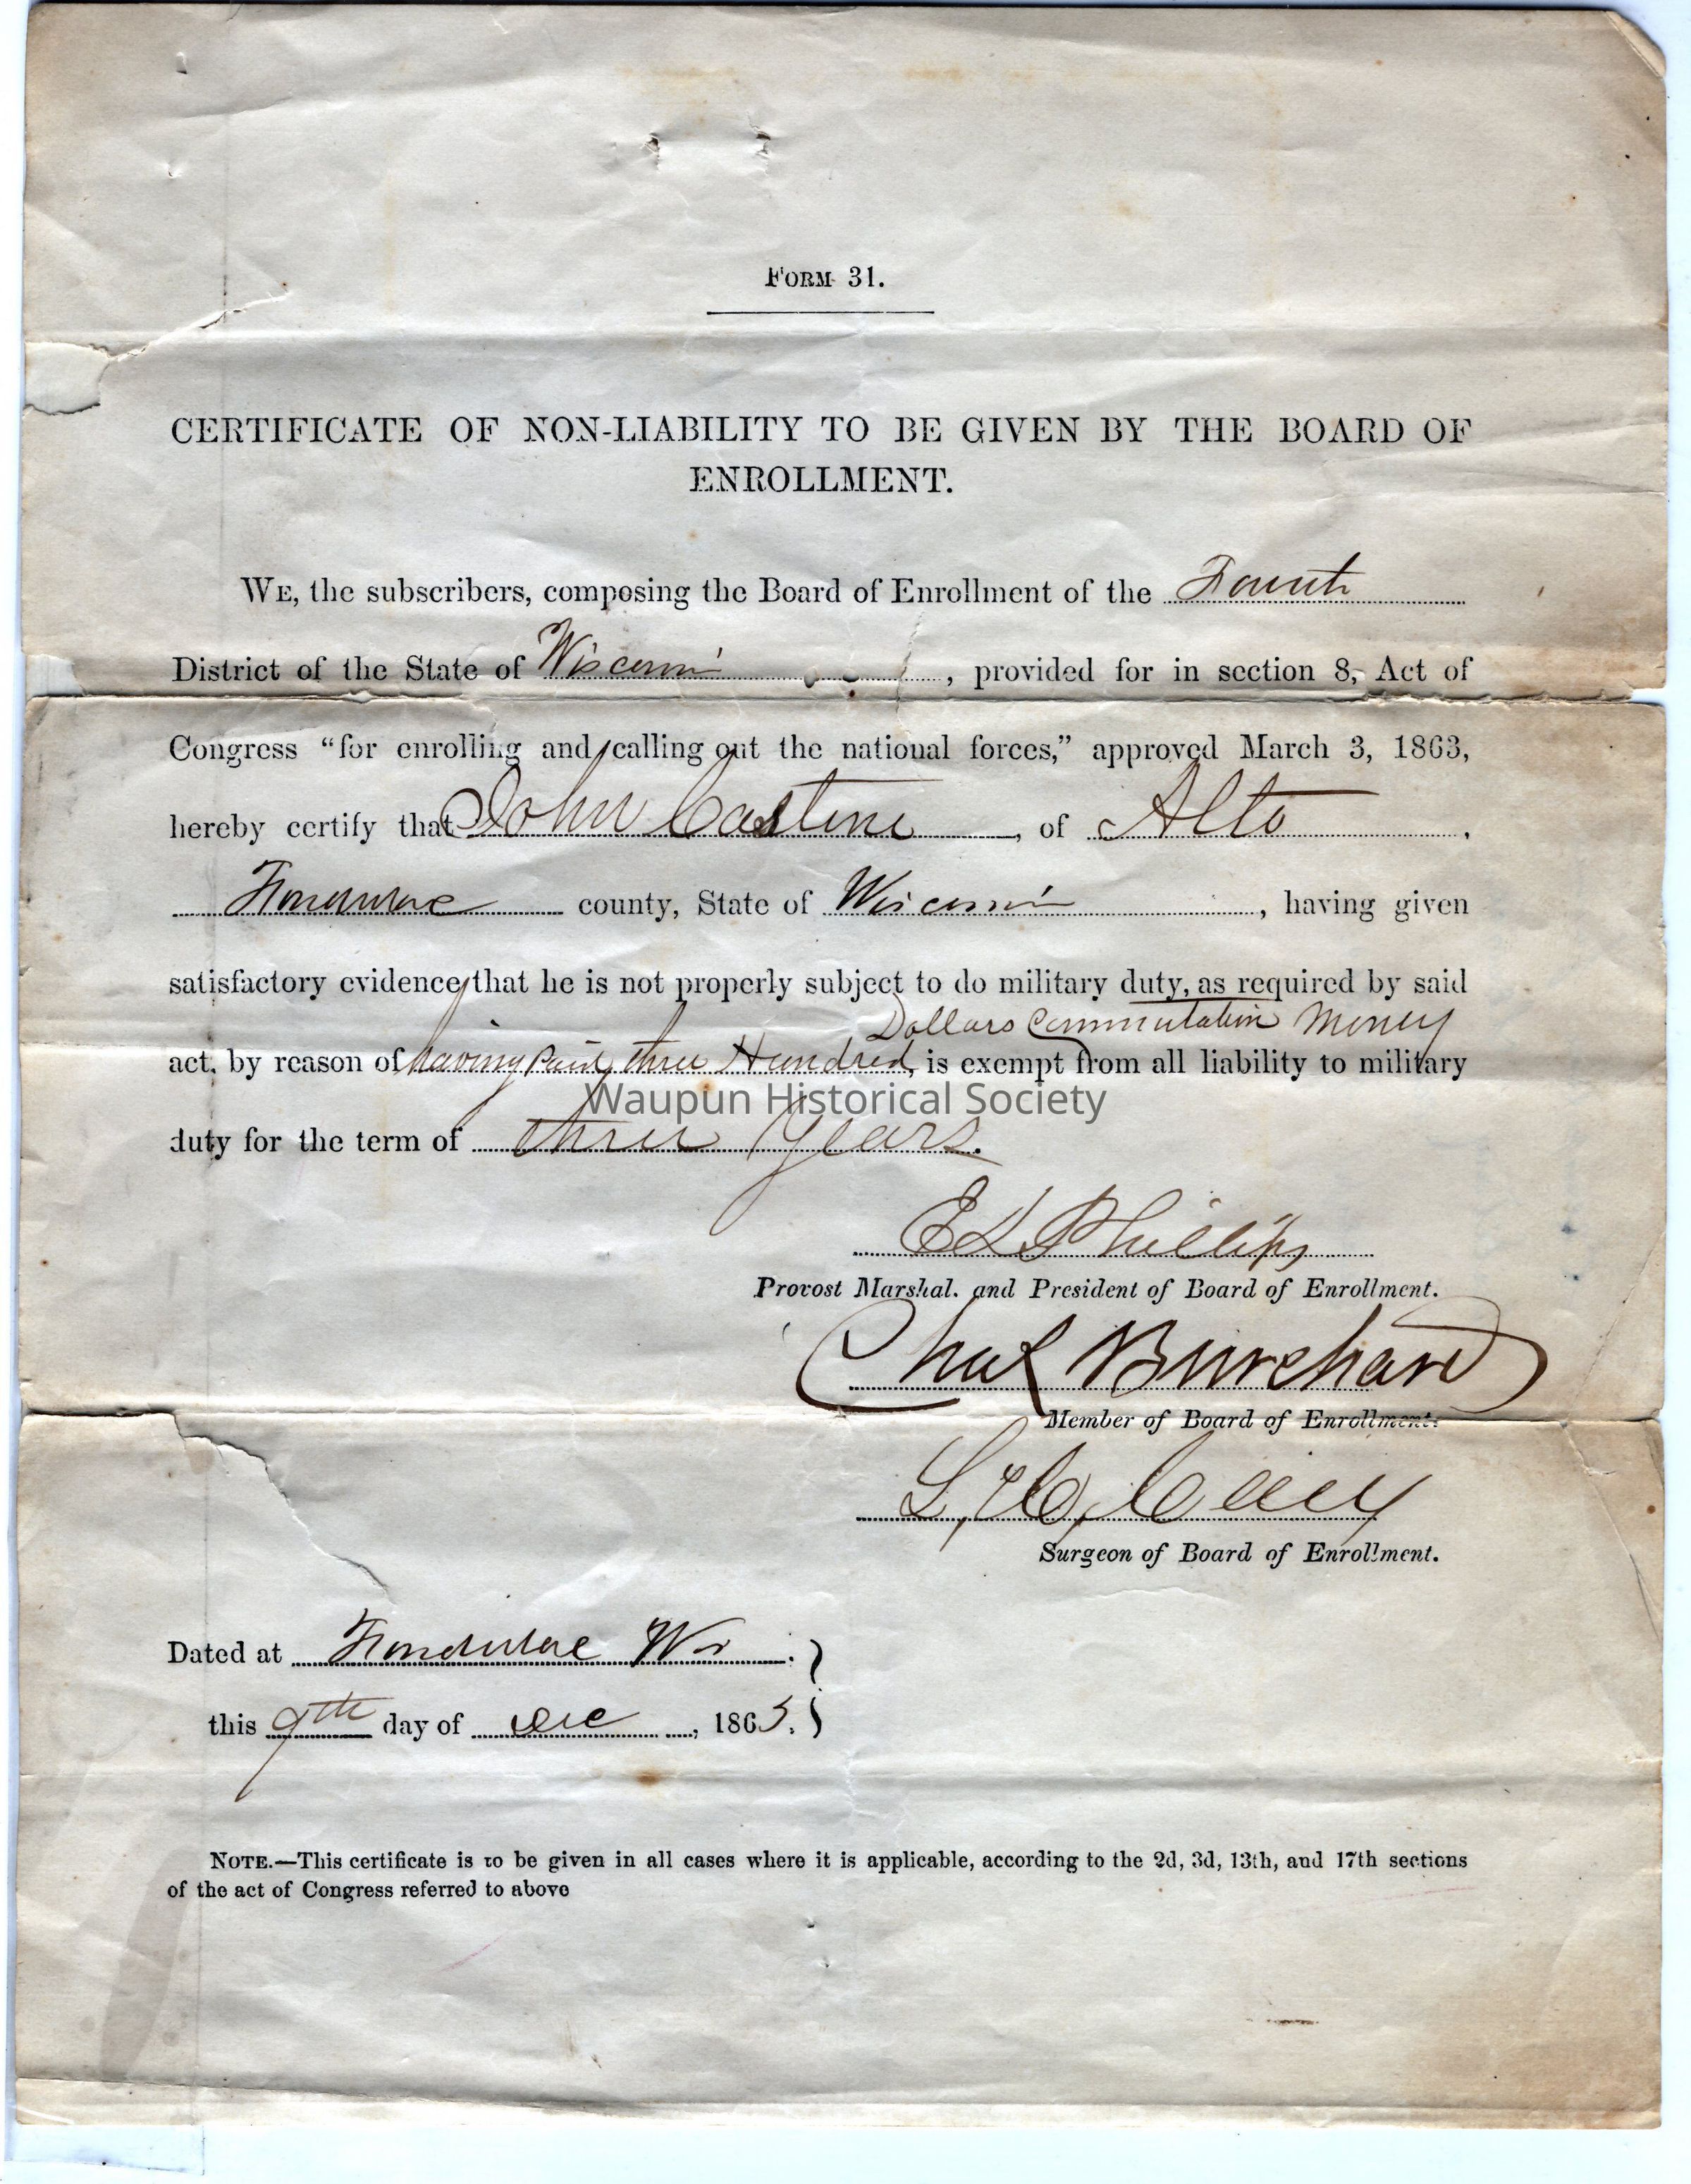 FORM 31.
CERTIFICATE OF NON-LIABILITY TO BE GIVEN BY THE BOARD OF
ENROLLMENT.
WE, the subscribers, composing the Board of Enrollment of the Fourth
District of the State of Wisconsin, provided for in section 8, Act of
Congress “for enrolling and calling out the national forces,” approved March 3, 1863,
hereby certify that John Castine, of Alto,
Fonddulac county, State of Wisconsin, having given
satisfactory evidence that he is not properly subject to do military duty, as required by said
Dollars Commutation Money
act, by reason of having paid three Hundred, is exempt from all liability to military
Waupun Historical Society
duty for the term of three years.
E L Phillips
Provost Marshal. and President of Board of Enrollment.
Burchard
Member of Board of Enrollment.
Surgeon of Board of Enrollment.
Dated at Fonddulac Wis.
this 9th day of Dec, 1863.
NOTE.—This certificate is to be given in all cases where it is applicable, according to the 2d, 3d, 13th, and 17th sections
of the act of Congress referred to above